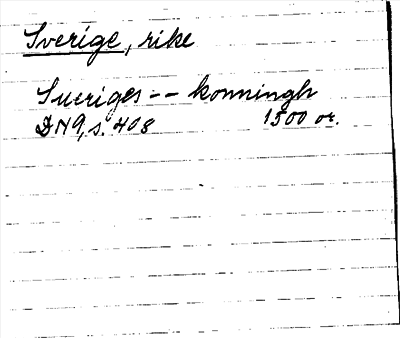 Sverige, rike
Sueriges -- konningh
DN9, s. 408 1500 or.